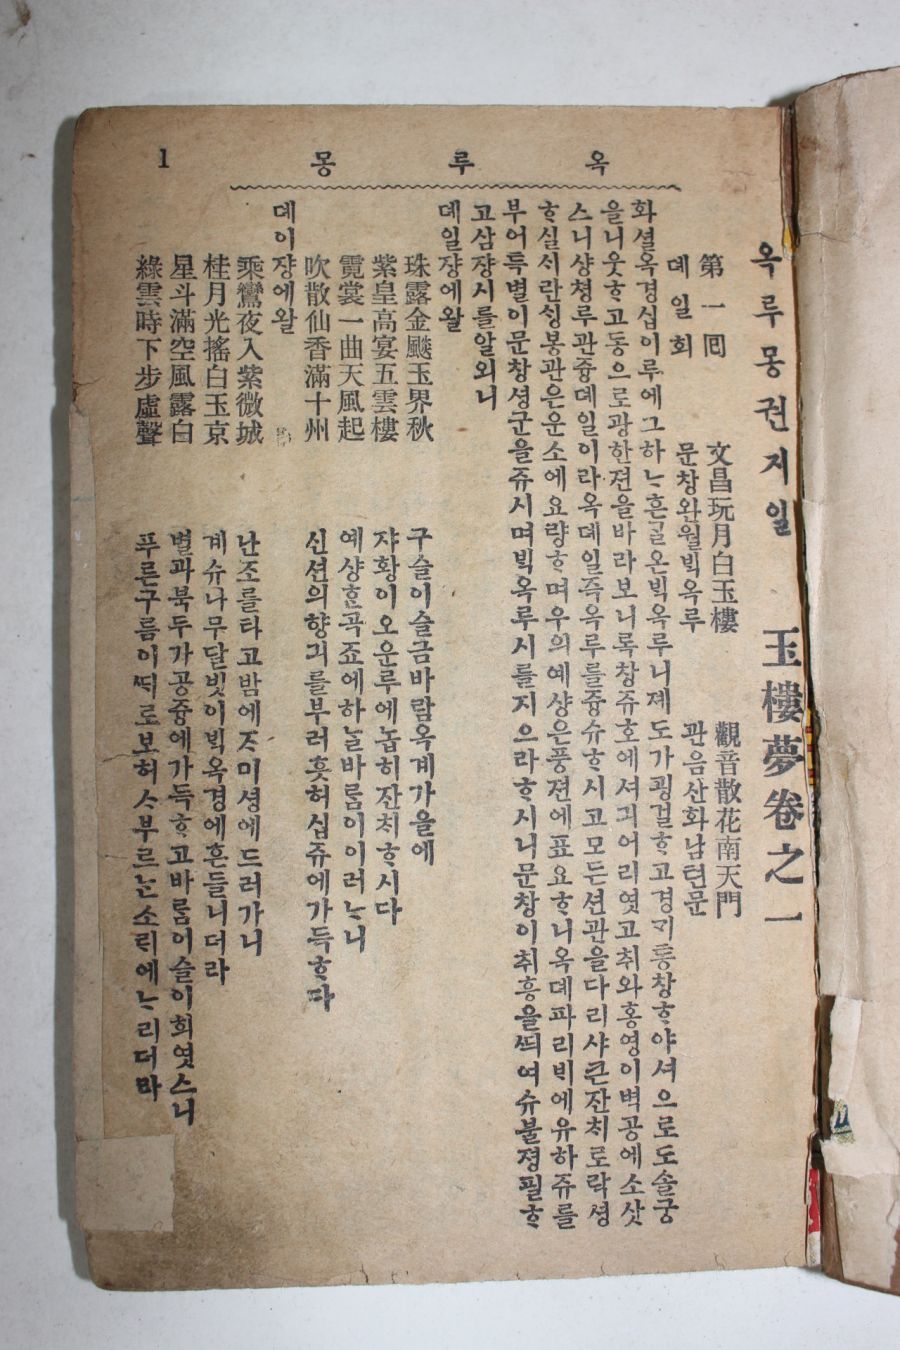 옥루몽
1
옥루몽권지일 玉樓夢卷之一
第一回 文昌玩月白玉樓 觀音散花南天門
뎨일회 문창완월ᄇᆡᆨ옥루 관음산화남텬문
화셜옥경십이루에그하ᄂᆞ흔ᄀᆞᆯ온ᄇᆡᆨ옥루니졔도가굉걸ᄒᆞ고경ᄀᆡ통창ᄒᆞ야셔으로도솔궁
을니웃ᄒᆞ고동으로광한젼을바라보니록창쥬호에셔긔어리엿고취와홍영이벽공에소삿
스니샹쳥루관즁뎨일이라옥뎨일즉옥루를즁슈ᄒᆞ시고모든션관을다리샤큰잔치로락셩
ᄒᆞ실ᄉᆡ란싱봉관은운소에요량ᄒᆞ며우의예샹은풍젼에표요ᄒᆞ니옥뎨파리ᄇᆡ에유하쥬를
부어특별이문창셩군을쥬시며ᄇᆡᆨ옥루시를지으라ᄒᆞ시니문창이취흥을ᄯᅴ여슈불졍필ᄒᆞ
고삼쟝시를알외니
뎨일쟝에왈
珠露金颷玉界秋 구슬이슬금바람옥계가을에
紫皇高宴五雲樓 쟈황이오운루에놉히잔치ᄒᆞ시다
霓裳一曲天風起 예샹ᄒᆞᆫ곡죠에하ᄂᆞᆯ바ᄅᆞᆷ이이러ᄂᆞ니
吹散仙香滿十州 신션의향긔를부러흣허십쥬에가득ᄒᆞ다
뎨이쟝에왈
乘鸞夜入紫微城 난조를타고밤에ᄌᆞ미셩에드러가니
桂月光搖白玉京 계슈나무달빗이ᄇᆡᆨ옥경에흔들니더라
星斗滿空風露白 별과북두가공즁에가득ᄒᆞ고바ᄅᆞᆷ이슬이희엿스니
綠雲時下步虛聲 푸른구름이ᄯᅢ로보허ᄉᆞ부르ᄂᆞᆫ소ᄅᆡ에ᄂᆞ리더라